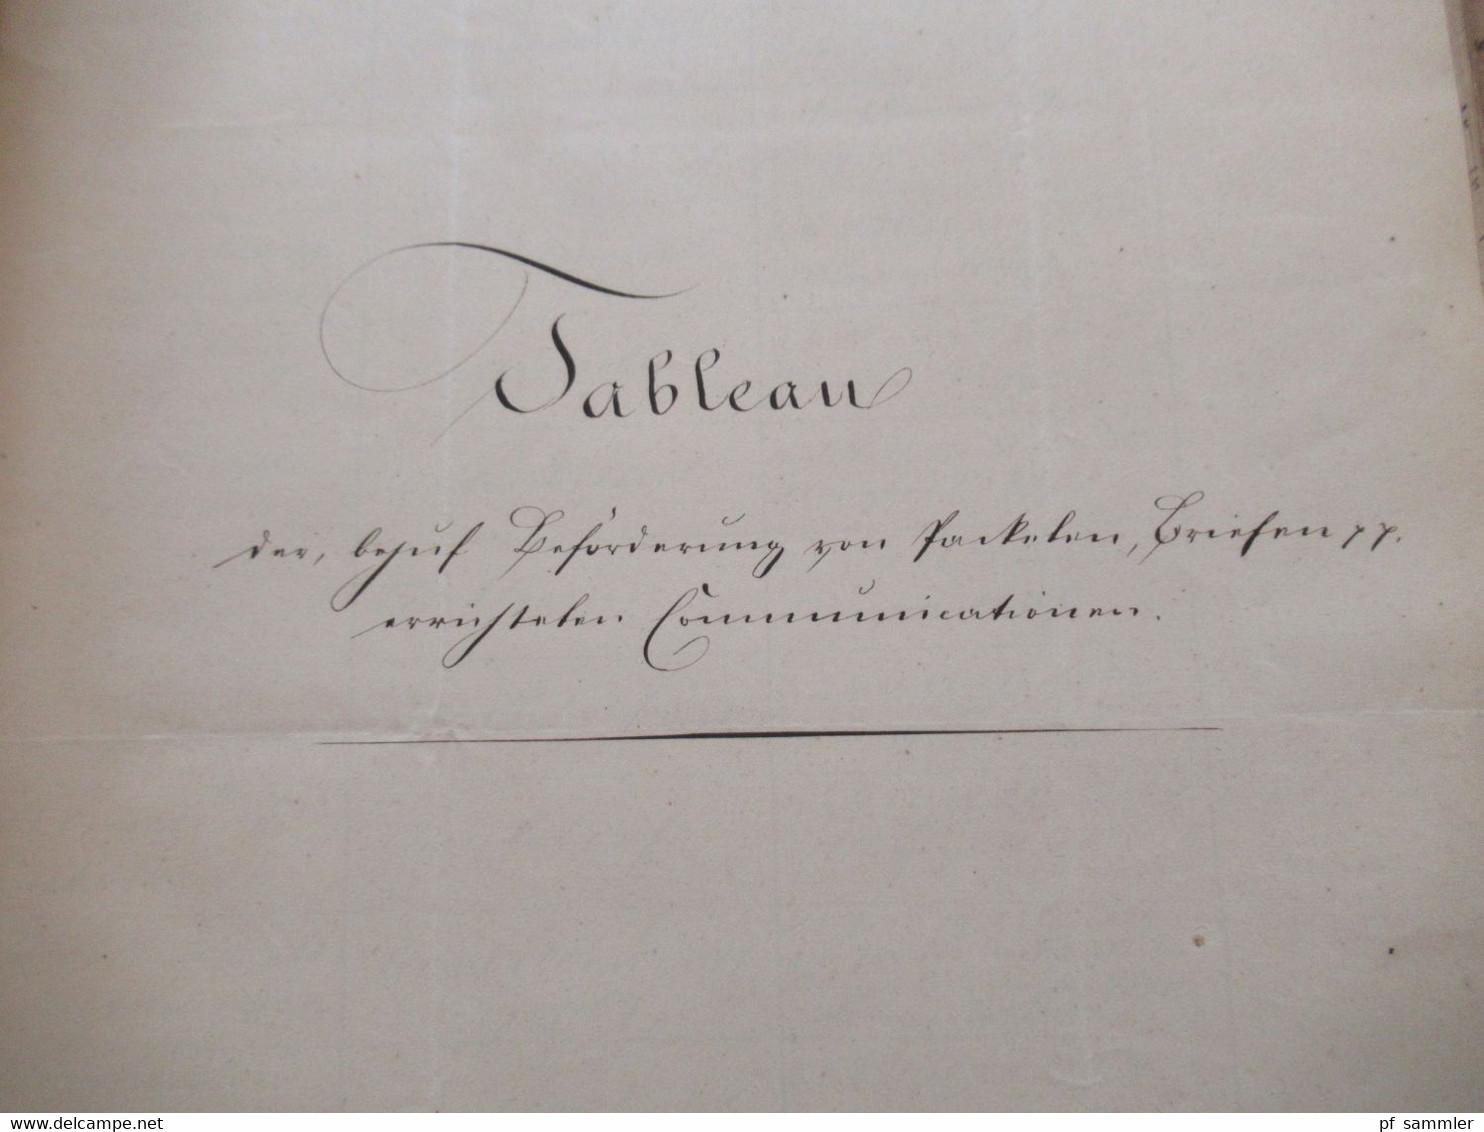 Tableau
der, behuf Beförderung von Packeten, Briefen pp.
errichteten Communicationen.
www.delcampe.net
pf_sammler